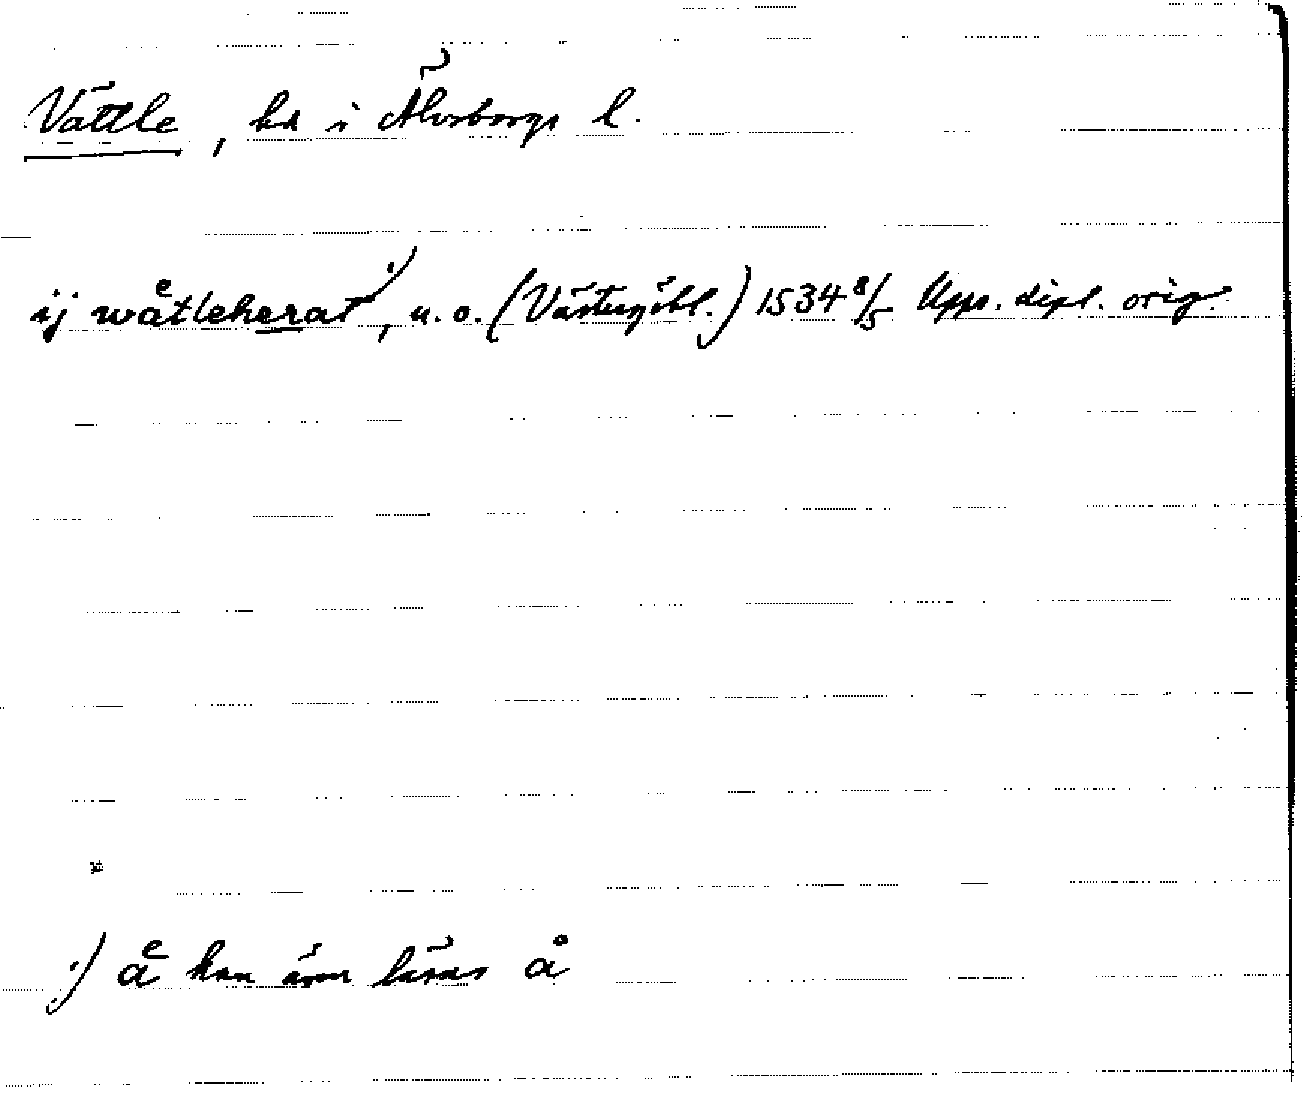 Vättle, hd i Älvsborgs l.
ij waͤtleherat ¹), u. o. (Västergötl.) 1534 8/5 Upps. dipl. orig.
¹) aͤ kan även läsas å